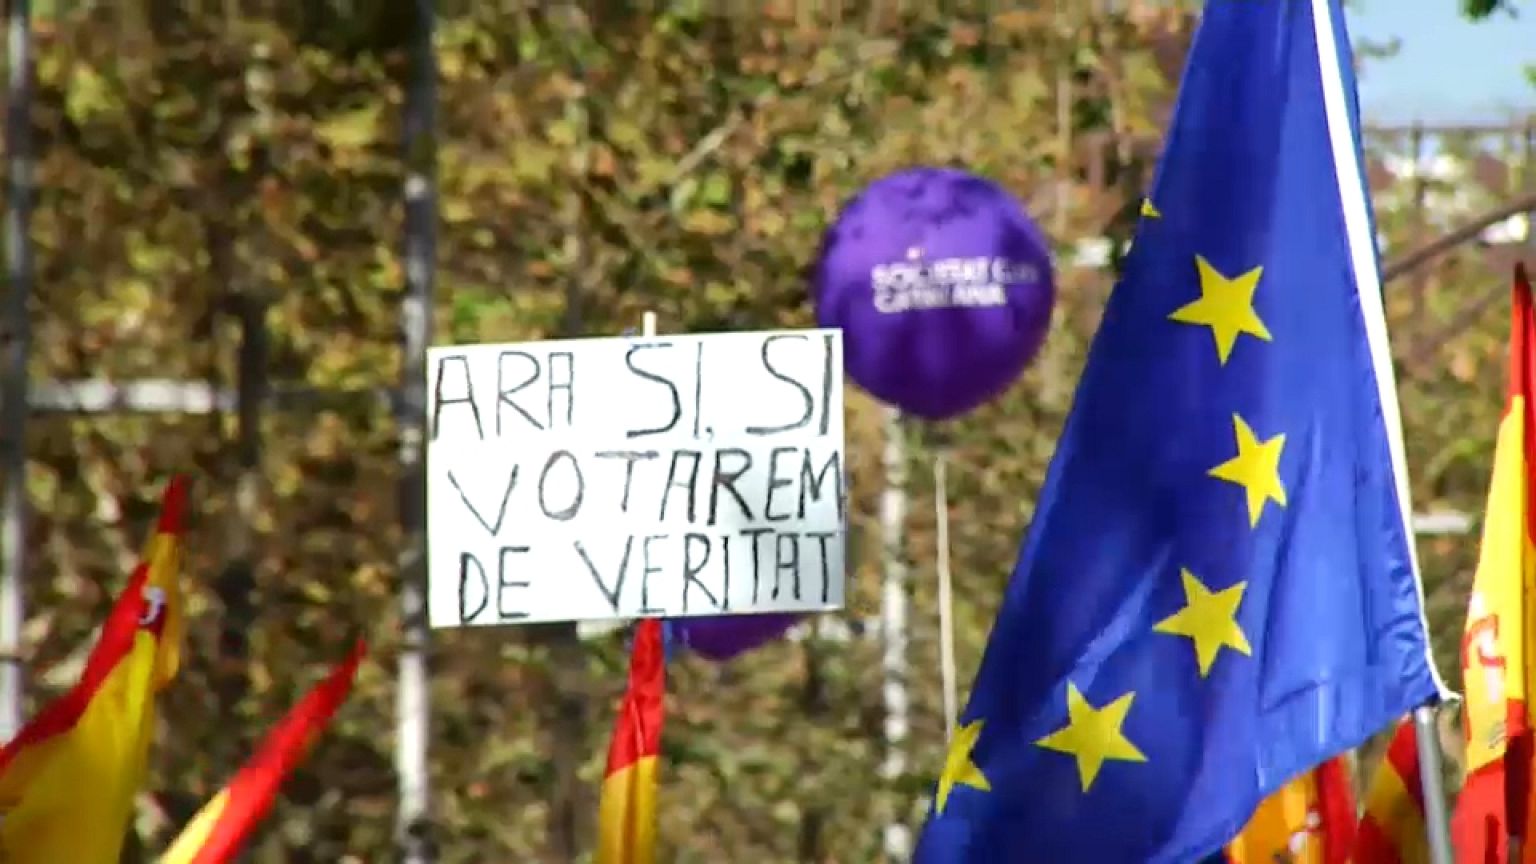 ARA SI, SI
VOTAREM
DE VERITAT
SOCIETAT
CATALANA